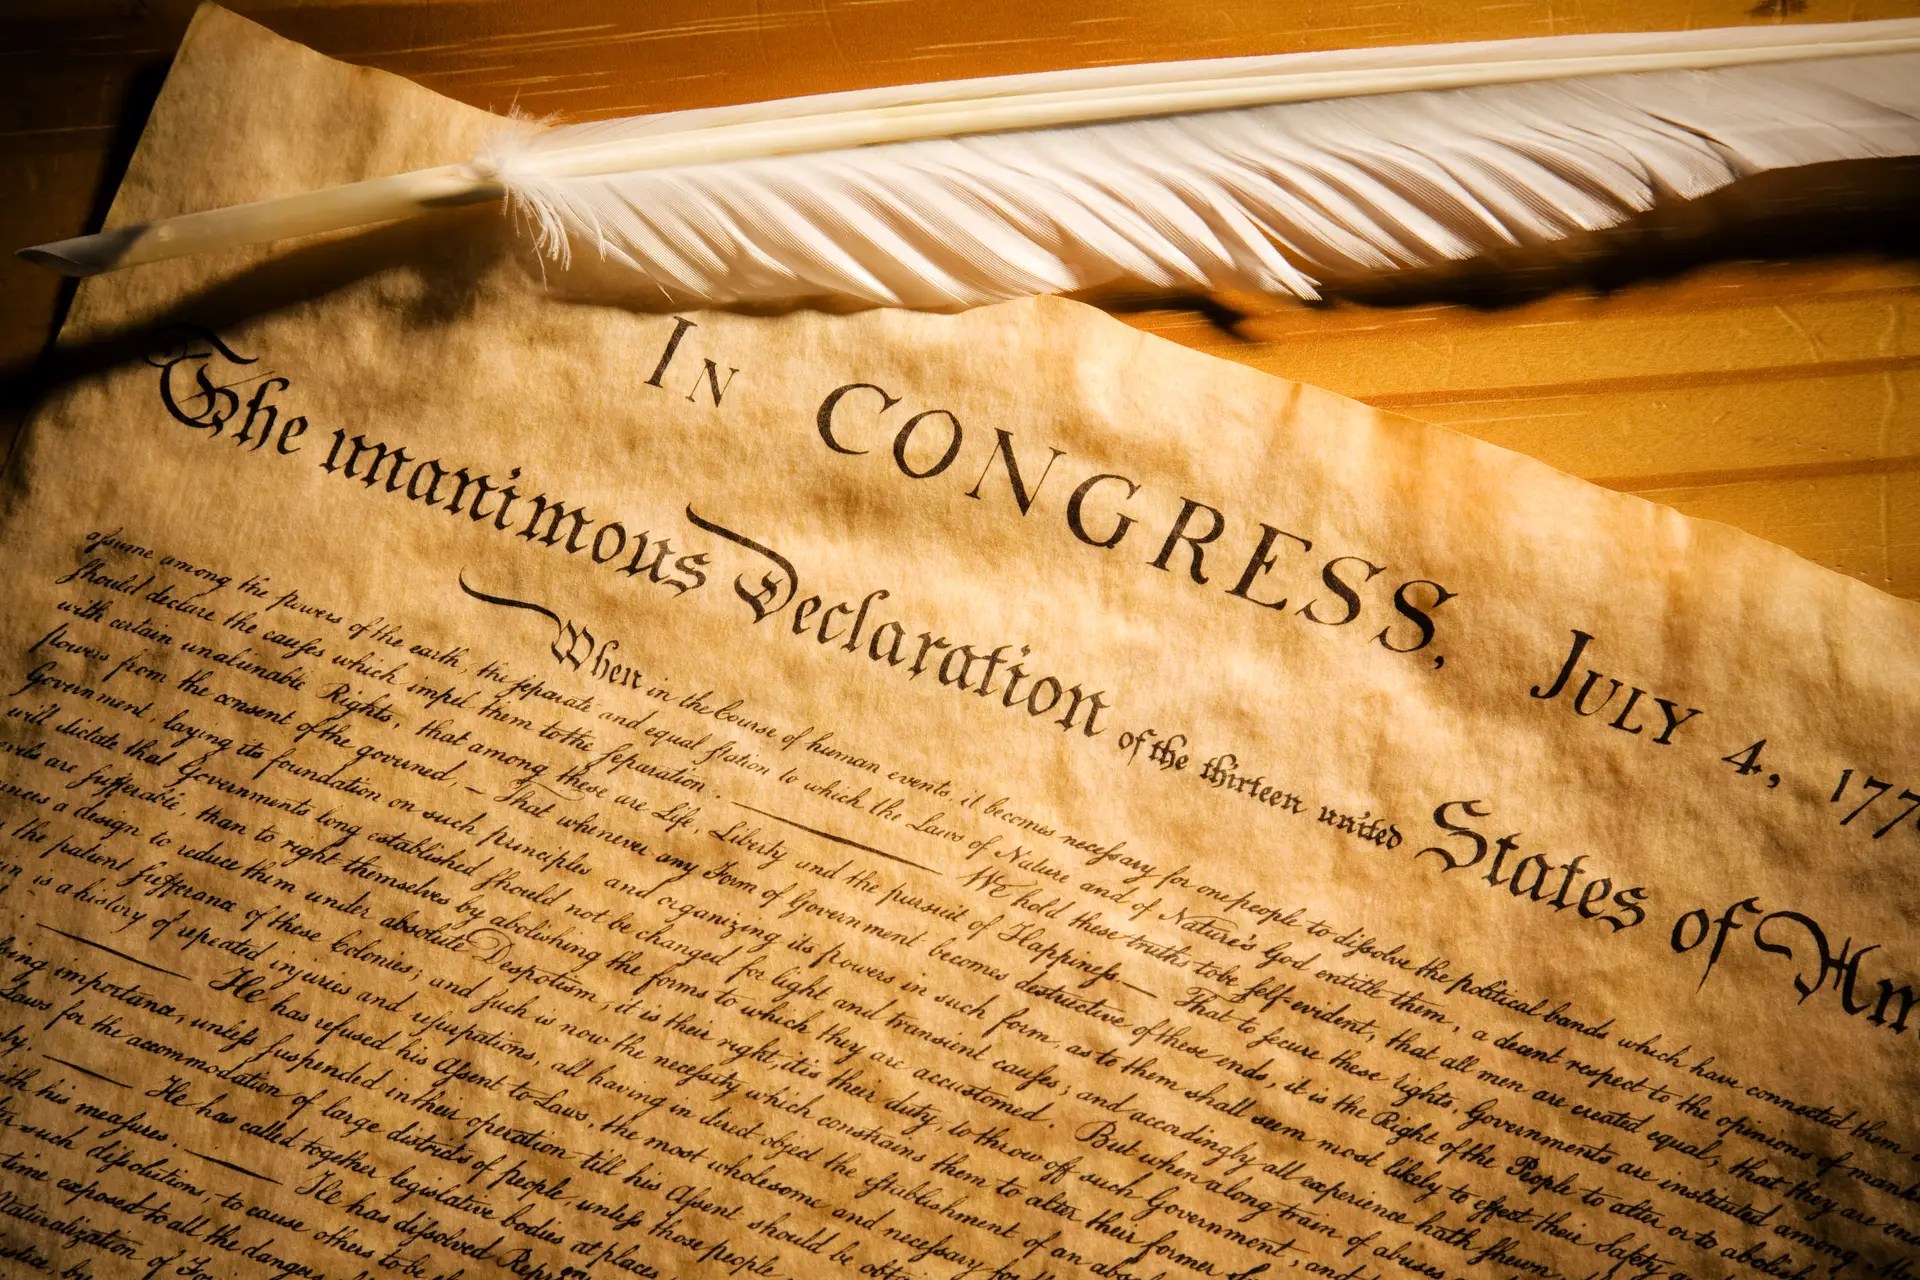 IN CONGRESS, JULY 4, 177
The unanimous Declaration of the thirteen united States of Am
When in the Course of human events, it becomes necessary for one people to dissolve the political bands which have connected them
assume among the powers of the earth, the separate and equal station to which the Laws of Nature and of Nature's God entitle them, a decent respect to the opinions of manki
should declare the causes which impel them to the separation. —— We hold these truths to be self-evident, that all men are created equal, that they are en
with certain unalienable Rights, that among these are Life, Liberty and the pursuit of Happiness.— That to secure these rights, Governments are instituted among
powers from the consent of the governed, — That whenever any Form of Government becomes destructive of these ends, it is the Right of the People to alter or to abolish
Government, laying its foundation on such principles and organizing its powers in such form, as to them shall seem most likely to effect their Safety
will dictate that Governments long established should not be changed for light and transient causes; and accordingly all experience hath shewn
evils are sufferable, than to right themselves by abolishing the forms to which they are accustomed. But when a long train of abuses
a design to reduce them under absolute Despotism, it is their right, it is their duty, to throw off such Government, and
the patient sufferance of these Colonies; and such is now the necessity which constrains them to alter their former
is a history of repeated injuries and usurpations, all having in direct object the establishment of an abso
—— He has refused his Assent to Laws, the most wholesome and necessary for
importance, unless suspended in their operation till his Assent should be obta
Laws for the accommodation of large districts of people, unless those people
—— He has called together legislative bodies at places
his measures. —— He has dissolved Repr
such dissolutions, to cause others to be
time exposed to all the dangers
Naturalization of